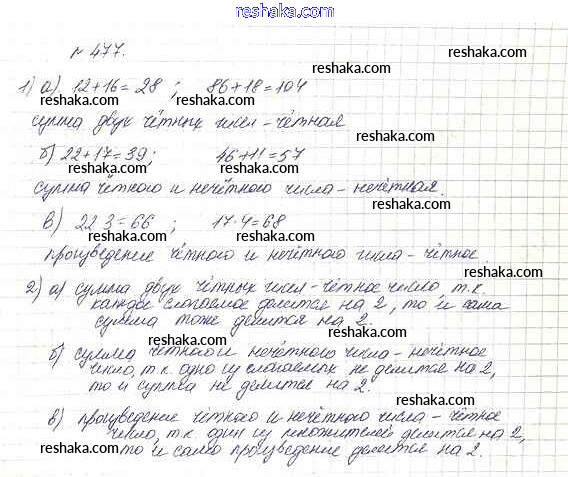 reshaka.com
reshaka.com
№ 477.
reshaka.com
1) а). 12+16=28 ; 86+18=104
reshaka.com reshaka.com reshaka.com
сумма двух чётных чисел - чётная
reshaka.com
б) 22+17=39; 46+11=57
reshaka.com reshaka.com reshaka.com
сумма чётного и нечётного числа - нечётная.
reshaka.com
в) 22·3=66 ; 17·4=68
reshaka.com reshaka.com reshaka.com
произведение чётного и нечётного числа - чётное.
reshaka.com
2) а) сумма двух чётных чисел - чётное число т.к.
каждое слагаемое делится на 2, то и сама
reshaka.com
сумма тоже делится на 2.
reshaka.com reshaka.com
б) сумма чётного и нечётного числа - нечётное
число, т.к. одно из слагаемых не делится на 2,
reshaka.com
то и сумма не делится на 2.
reshaka.com reshaka.com
в) произведение чётного и нечётного числа - чётное
число, т.к. один из множителей делится на 2,
reshaka.com
то и само произведение делится на 2.
reshaka.com reshaka.com